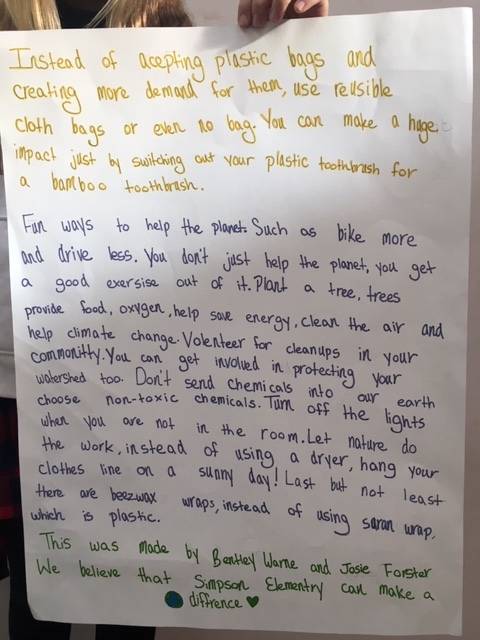 Instead of acepting plastic bags and
creating more demand for them, use reusible
cloth bags or even no bag. You can make a huge
impact just by switching out your plastic toothbrush for
a bamboo toothbrush.
Fun ways to help the planet. Such as bike more
and drive less. You don't just help the planet, you get
a good exersise out of it. Plant a tree, trees
provide food, oxygen, help save energy, clean the air and
help climate change. Volenteer for cleanups in your
committy. You can get involved in protecting your
watershed too. Don't send chemicals into our earth
choose non-toxic chemicals. Turn off the lights
when you are not in the room. Let nature do
the work, instead of using a dryer, hang your
clothes line on a sunny day! Last but not least
there are beezwax wraps, instead of using saran wrap,
which is plastic.
This was made by Bentley Warne and Josie Forster
We believe that Simpson Elementry can make a
diffrence